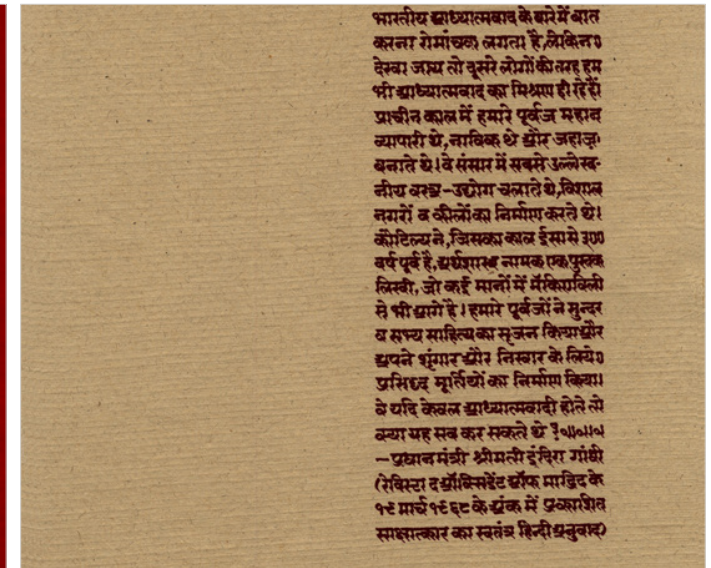 भारतीय आध्यात्मवाद के बारे में बात
करना रोमांचक लगता है, लेकिन०
देखा जाय तो दूसरे लोगों की तरह हम
भी आध्यात्मवाद का मिश्रण ही रहे हैं।
प्राचीन काल में हमारे पूर्वज महान
व्यापारी थे, नाविक थे और जहाज़
बनाते थे। वे संसार में सबसे उल्लेख-
नीय वस्त्र-उद्योग चलाते थे, विशाल
नगरों व कीलों का निर्माण करते थे।
कौटिल्य ने, जिसका काल ईसा से ३००
वर्ष पूर्व है, अर्थशास्त्र नामक एक पुस्तक
लिखी, जो कई मानों में मॅकिएविली
से भी आगे है। हमारे पूर्वजों ने सुन्दर
व सभ्य साहित्य का सृजन किया और
अपने शृंगार और निखार के लिये०
प्रसिध्द मूर्तियों का निर्माण किया।
वे यदि केवल आध्यात्मवादी होते तो
क्या यह सब कर सकते थे ?
—प्रधान मंत्री श्रीमती इंदिरा गांधी
(रेविस्टा द ऑक्सिडेंट ऑफ माद्रिद के
१९ मार्च १९६८ के अंक में प्रकाशित
साक्षात्कार का स्वतंत्र हिन्दी अनुवाद)